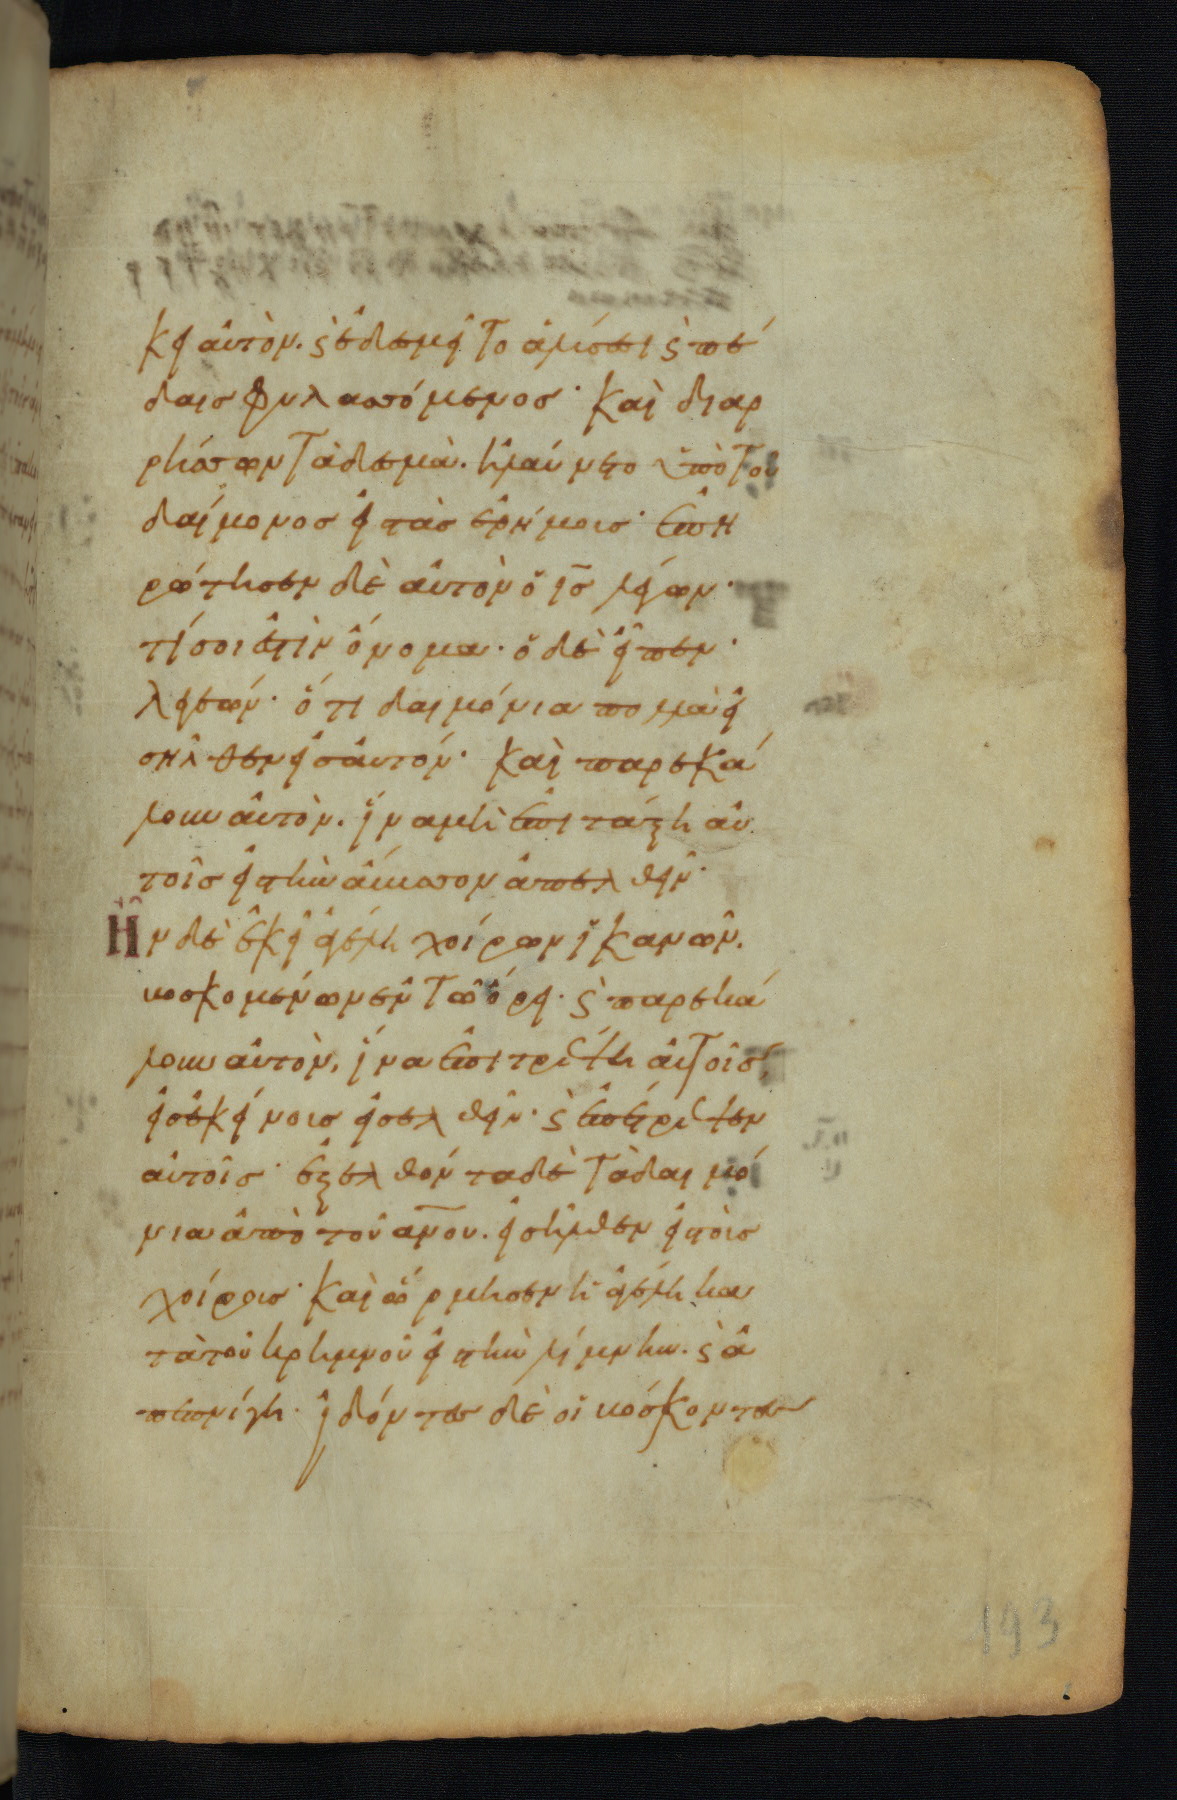 κει αὐτὸν. ϛ ἐδεσμεῖτο ἁλύσεσι ϛ πέ
δαις φυλαττόμενος· καὶ διαρ
ρήσσων τὰ δεσμὰ. ἠλαύνετο ὑπὸ τοῦ
δαίμονος εἰς τὰς ἐρήμους· ἐπη
ρώτησεν δὲ αὐτὸν ὁ ις λέγων·
τί σοι ἐστὶν ὄνομα· ὁ δὲ εἶπεν·
λεγεών· ὅτι δαιμόνια πολλὰ εἰ
σῆλθεν εἰς αὐτόν· καὶ παρεκά
λουν αὐτὸν. ἵνα μὴ ἐπιτάξη αὐ
τοῖς εἰς τὴν ἄβυσσον ἀπελθεῖν·
Ἦν δὲ ἐκεῖ ἀγέλη χοίρων ἱκανῶν.
βοσκομένων ἐν τῶ ὄρει· ϛ παρεκά
λουν αὐτὸν, ἵνα ἐπιτρέψη αὐτοῖς
εἰς ἐκείνους εἰσελθεῖν· ϛ ἐπέτρεψεν
αὐτοῖς· ἐξελθόντα δὲ τὰ δαιμό
νια ἀπὸ τοῦ ανου. εἰσῆλθεν εἰς τοὺς
χοίρους· καὶ ὥρμησεν ἡ ἀγέλη κα
τὰ τοῦ κρημνοῦ εἰς τὴν λίμνην. ϛ ἀ
πεπνίγη· ἰδόντες δὲ οἱ βόσκοντες
193